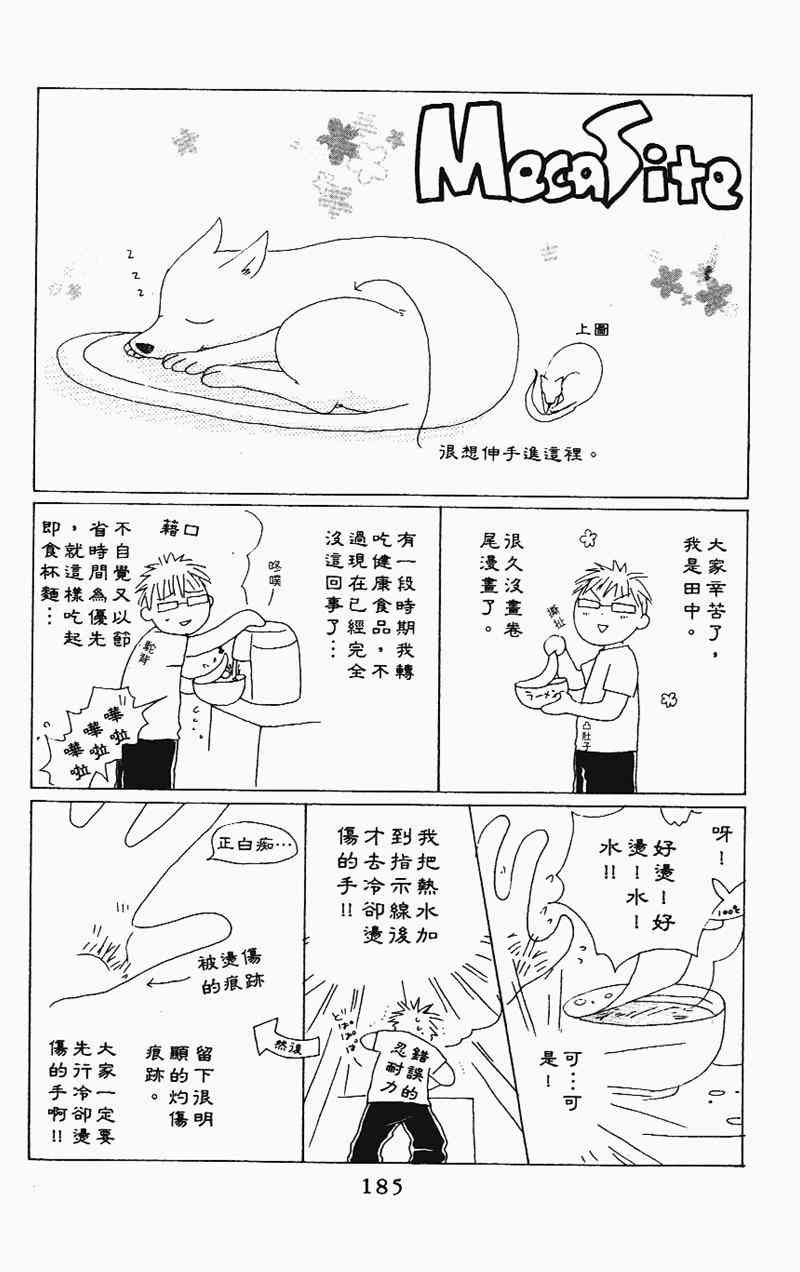 MecaSite
z
z
z
上圖
很想伸手進這裡。
大家辛苦了,
我是田中。
很久沒畫卷
尾漫畫了。
撕扯
ラーメン
凸肚子
有一段時期我轉
吃健康食品,不
過現在已經完全
沒這回事了…
咚噗
藉口
駝背
不自覺又以節
省時間為優先
,就這樣吃起
即食杯麵…
嘩啦
嘩啦
嘩啦
呀!
好燙!好
燙!水!
水!!
100℃
可…可
是!
我把熱水加
到指示線後
才去冷卻燙
傷的手!!
錯誤的
忍耐力
然後
正白痴…
被燙傷
的痕跡
留下很明
顯的灼傷
痕跡。
大家一定要
先行冷卻燙
傷的手啊!!
185